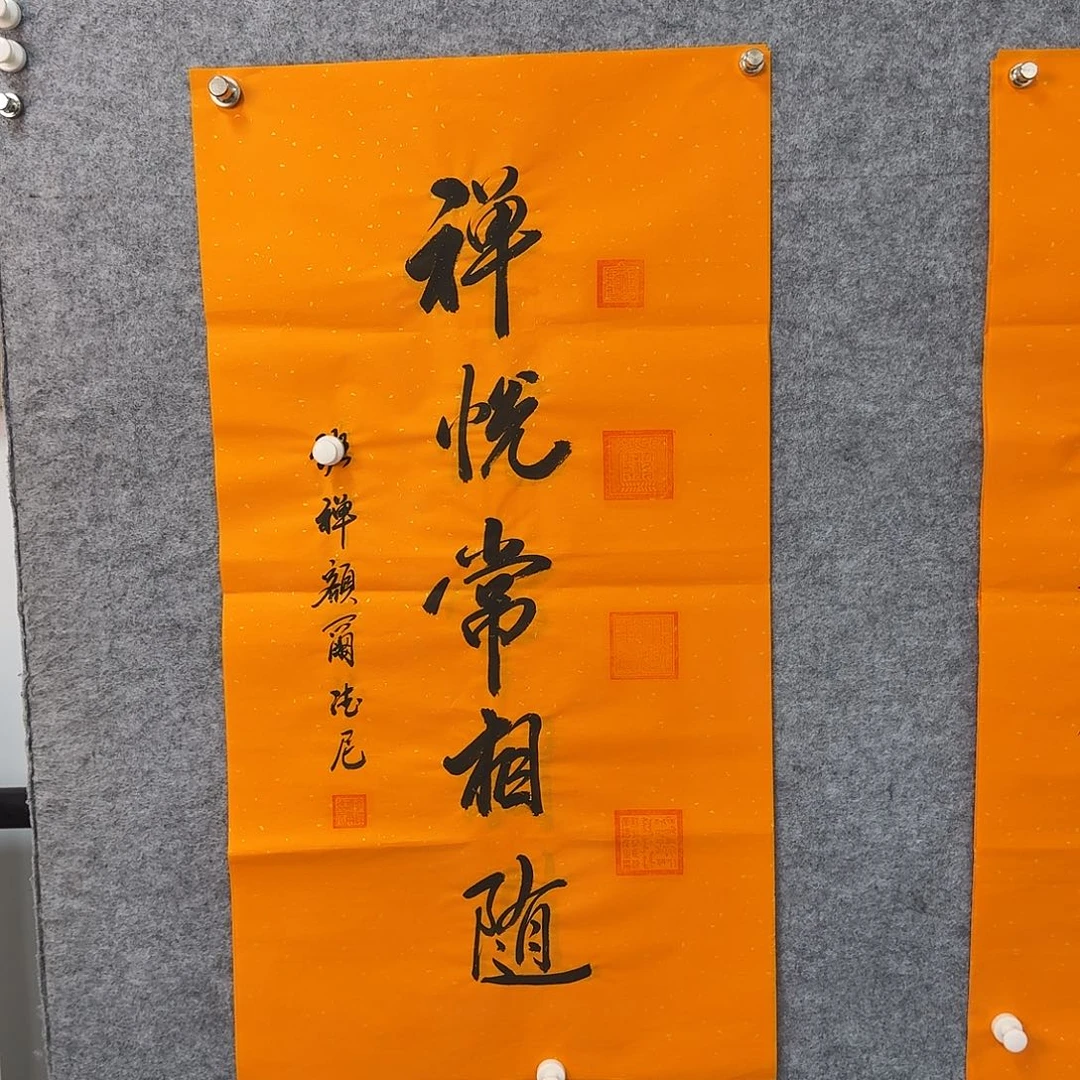 禅悦常相随
禅额爾德尼